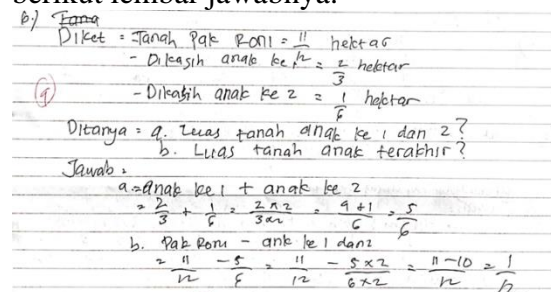 berikut lembar jawabnya.
6.) Tana
Diket : Tanah Pak Roni = 11/12 hektar
- Dikasih anak ke 1 = 2/3 hektar
- Dikasih anak ke 2 = 1/6 hektar
Ditanya = a. Luas tanah anak ke 1 dan 2?
b. Luas tanah anak terakhir?
Jawab :
a. = anak ke 1 + anak ke 2
= 2/3 + 1/6 = 2×2/3×2 = 4+1/6 = 5/6
b. Pak Roni - ank ke 1 dan 2
= 11/12 - 5/6 = 11/12 - 5×2/6×2 = 11-10/12 = 1/12